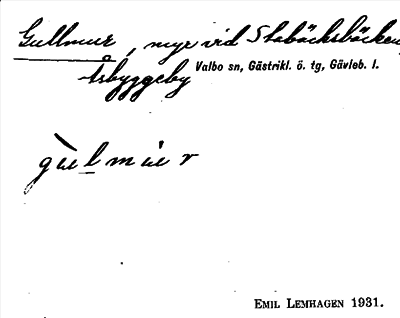 Gullmur, myr vid Stabäcksbäcken,
Åsbyggeby Valbo sn, Gästrikl. ö. tg, Gävleb. l.
gùlmúr
EMIL LEMHAGEN 1931.